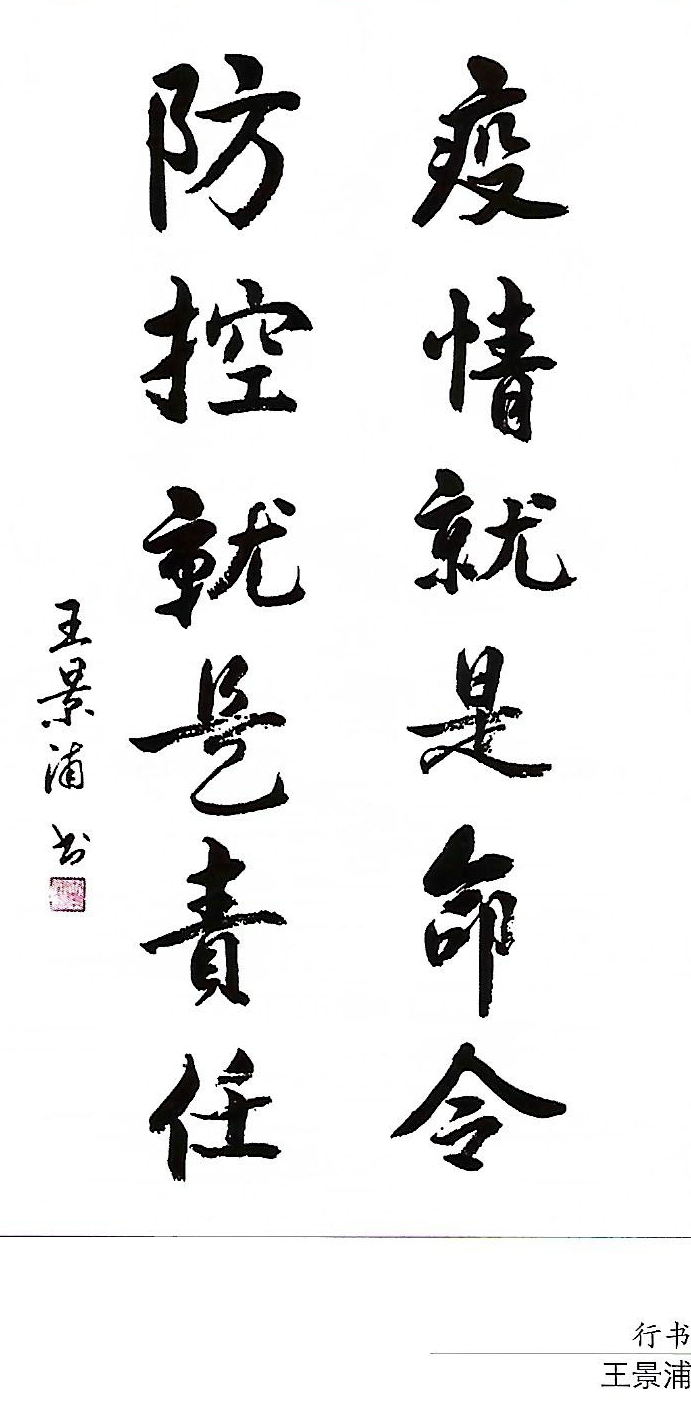 疫情就是命令
防控就是責任
王景浦书
行书
王景浦